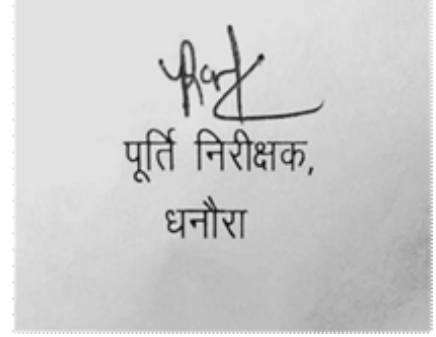 पूर्ति निरीक्षक,
धनौरा